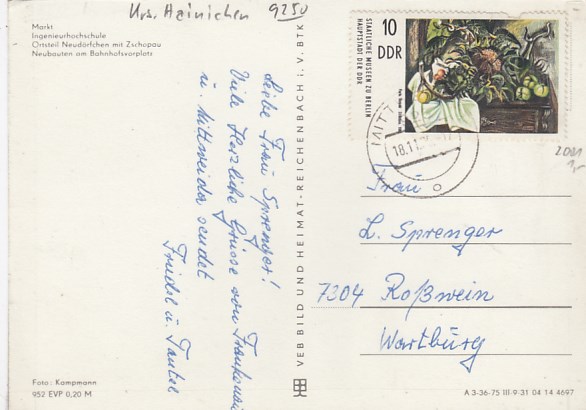 Krs. Hainichen 9250
Markt
Ingenieurhochschule
Ortsteil Neudörfchen mit Zschopau
Neubauten am Bahnhofsvorplatz
Liebe Frau Sprenger!
Viele Herzliche Grüsse von
u. Mittweida sendet
Friedel u.
VEB BILD UND HEIMAT · REICHENBACH i. V. BTK
10
DDR
STAATLICHE MUSEEN ZU BERLIN
HAUPTSTADT DER DDR
MITTW
18.11.
Frau
L. Sprenger
7304 Roßwein
Wartburg
Foto: Kampmann
952 EVP 0,20 M
A 3-36-75 III-9-31 04 14 4697